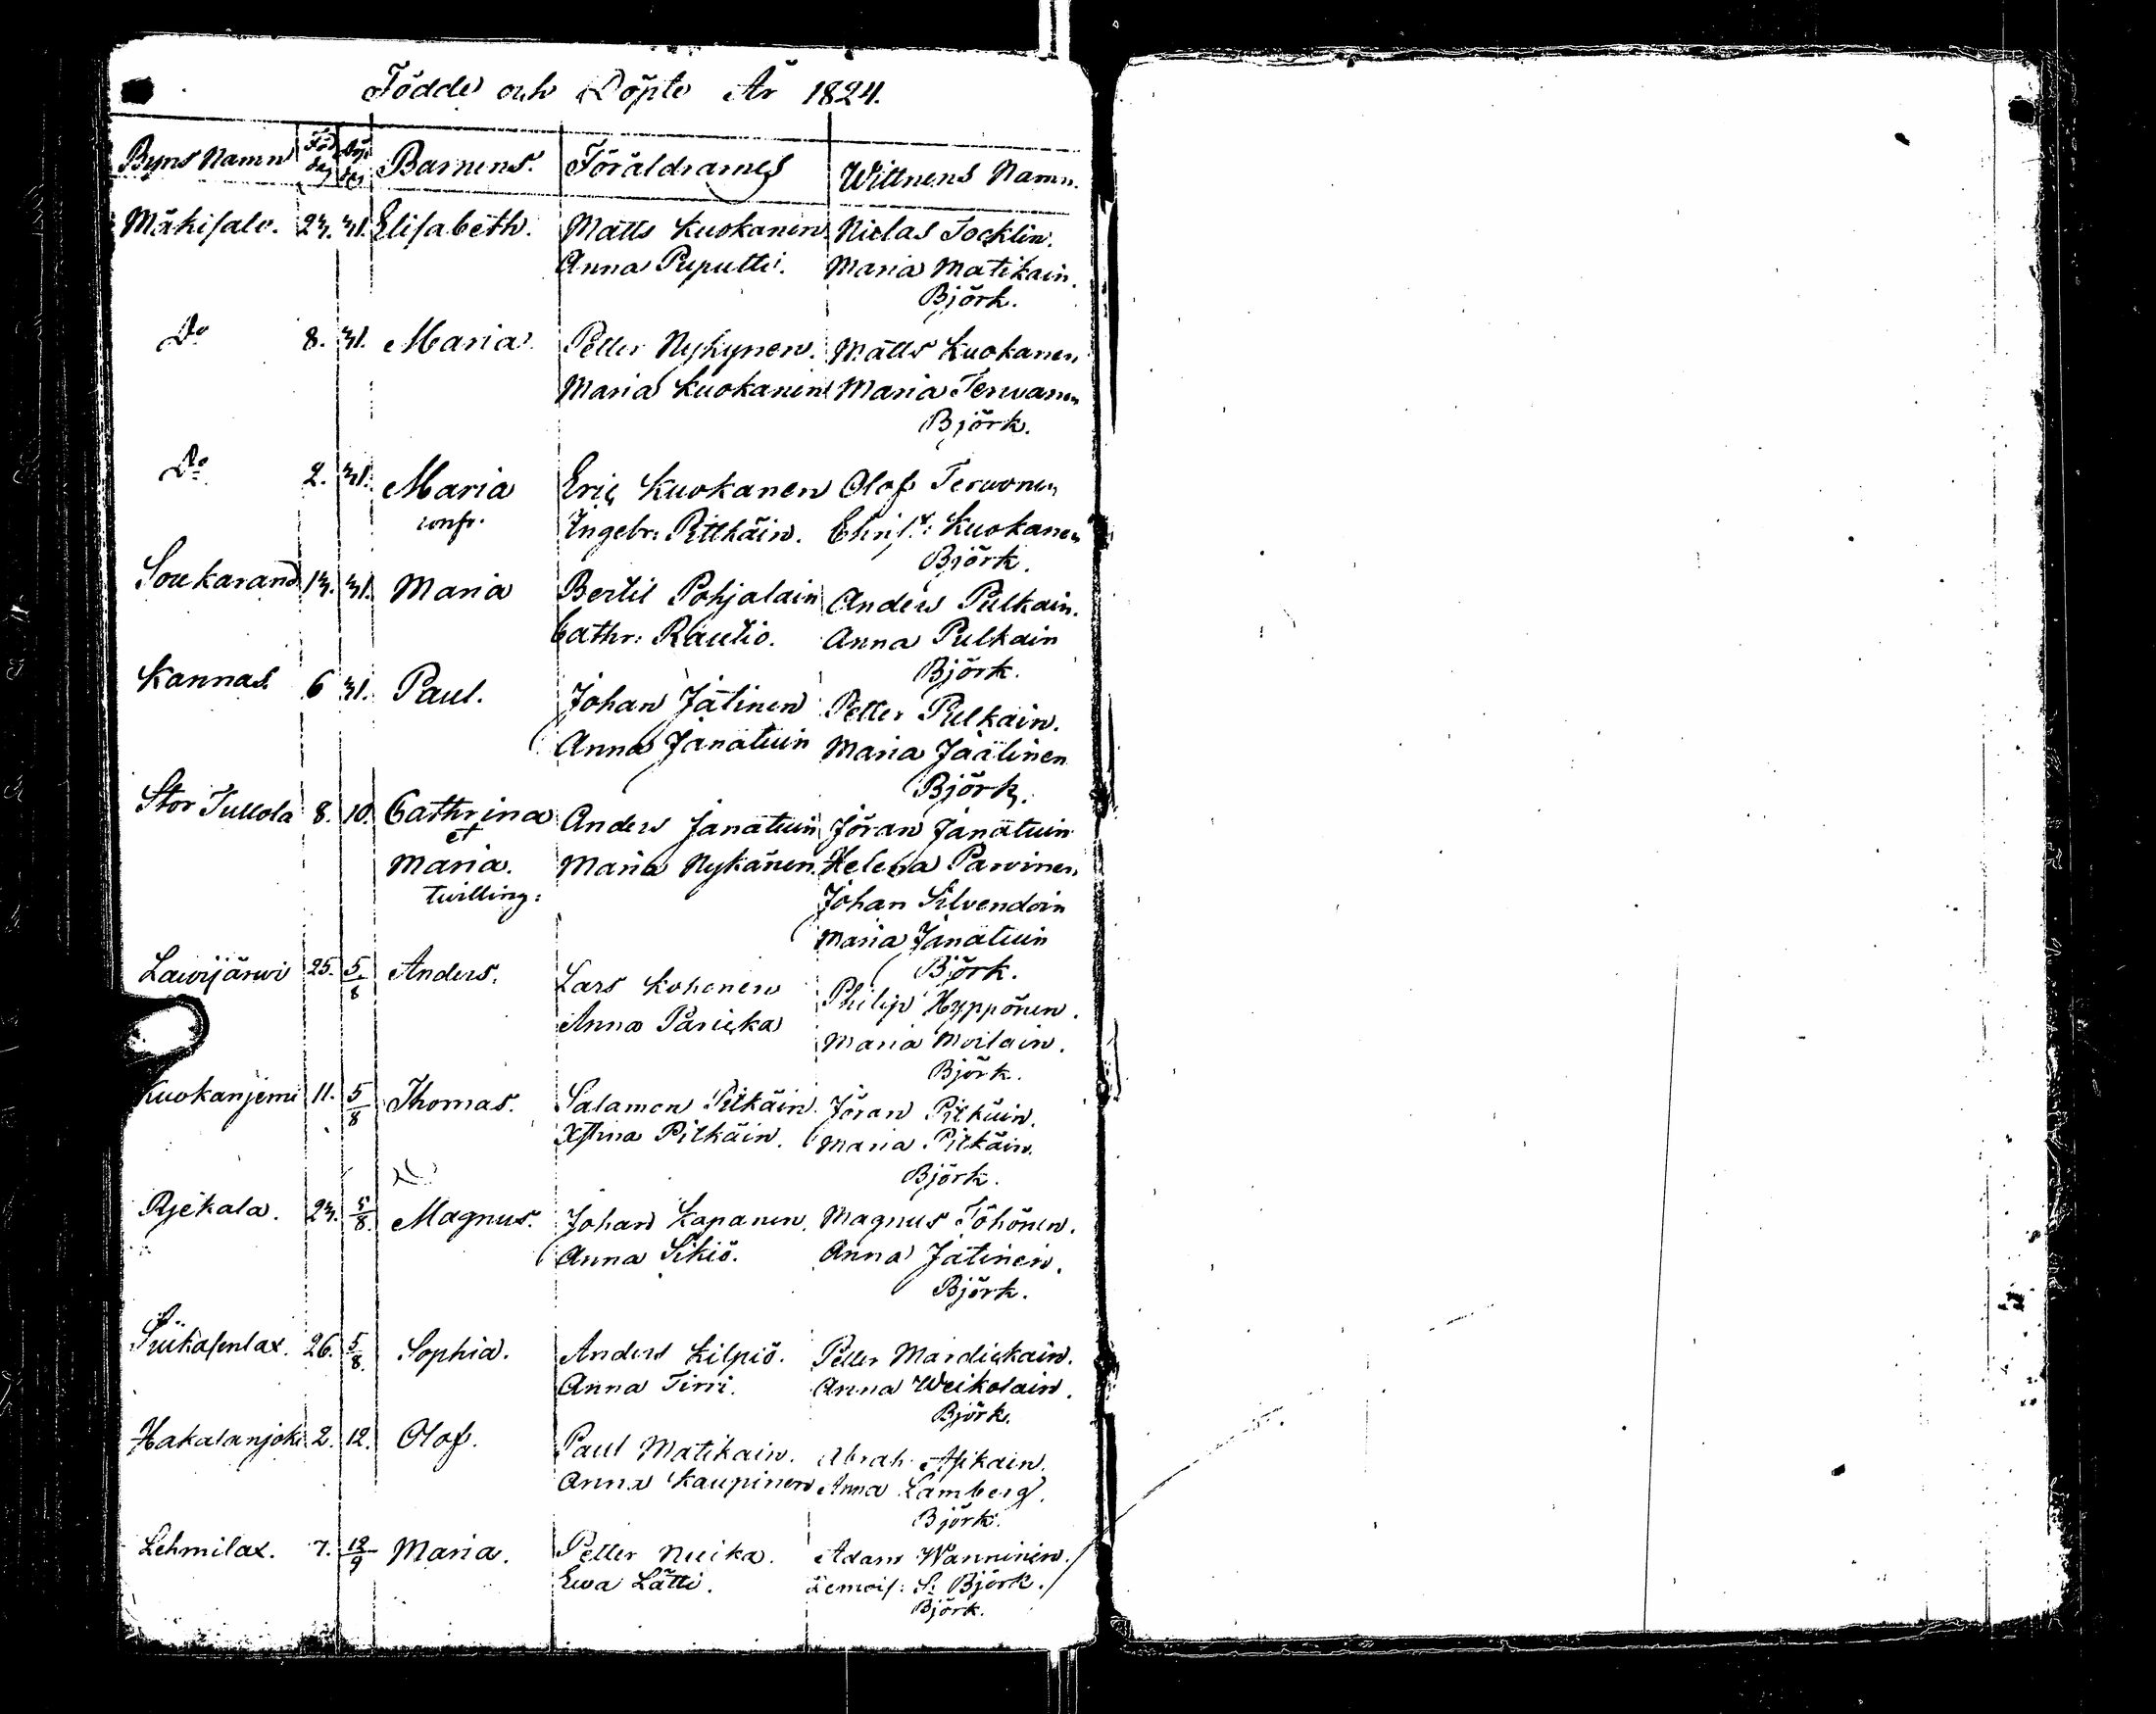 Födde och Döpte År 1824.
Byns Namn Föd dag Döp dag Barnens. Föräldrarnes Wittnens Namn.
Mäkisalo. 23. 31. Elisabeth. Matts Kuokanen Niclas Tocklin.
Anna Puputti. Maria Matikain.
Björk.
Do 8. 31. Maria. Petter Nykynen. Matts Kuokanen
Maria Kuokanen Maria Terwanen
Björk.
Do 2. 31. Maria Eric Kuokanen Olof Terwonen
Ingebr: Pitkäin. Kuokanen
Björk.
Soukarand 13. 31. Maria Bertil Pohjalain Anders Pulkain.
Cathr: Rautio. Anna Pulkain
Björk.
Kannas. 6 31. Paul. Johan Jätinen Petter Pulkain.
Anna Janatuin Maria Jäätinen
Björk.
Stor Tullola 8. 10. Cathrina Anders Janatuin Jöran Janatuin
et
Maria. Maria Nykänen. Helena Parvinen
twilling: Johan Silvendoin
Maria Janatuin
Björk.
Lawijärwi 25. 5/8 Anders. Lars Kohonen Philip Hyppönen.
Anna Päricka Maria Moilain.
Björk.
Kuokanjemi 11. 5/8 Thomas. Salamon Pitkäin. Jöran Pitkäin.
Xstina Pitkäin. Maria Pitkäin.
Björk.
Rjekala. 23. 5/8. Magnus. Johan Kapanen. Magnus Töhönen.
Anna Sikiö. Anna Jätinen.
Björk.
Siikasenlax. 26. 5/8. Sophia. Anders Kilpiö. Petter Mardickain.
Anna Tirri. Anna Weikolain.
Björk.
Hakalanjoki 2. 12. Olof. Paul Matikain. Abrah. Asikain.
Anna Kaupinen Anna Lamberg.
Björk.
Lehmilax. 7. 12/9 Maria. Petter Nuika. Adam Wanninen.
Ewa Lätti. Demois: S: Björk.
Björk.